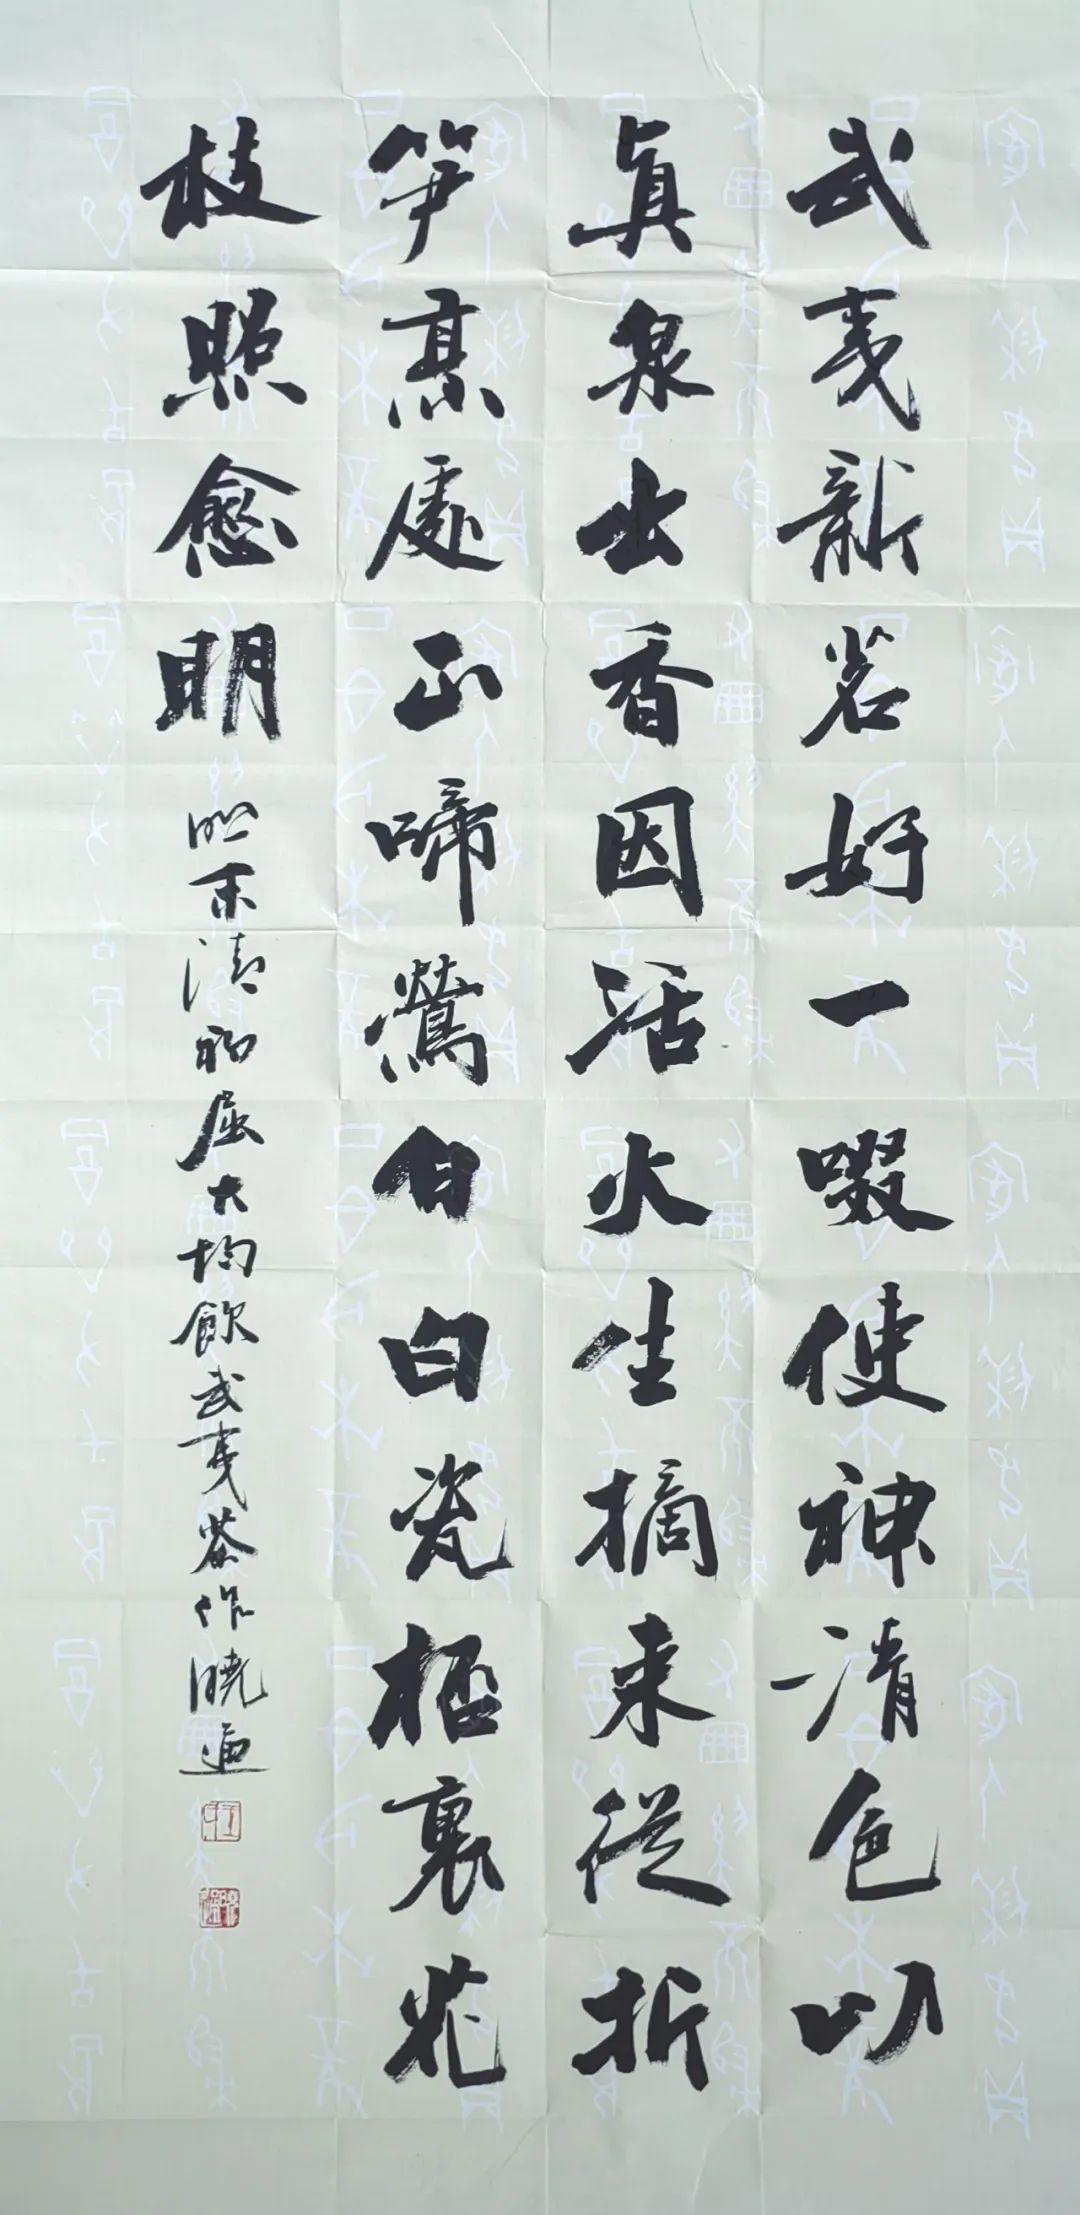 武夷新茗好一啜使神清色以
真泉出香因活火生摘来從折
笋烹處正啼鶯白白瓷柸裏花
枝照愈明
明末清初屈大均飲武夷茶作曉